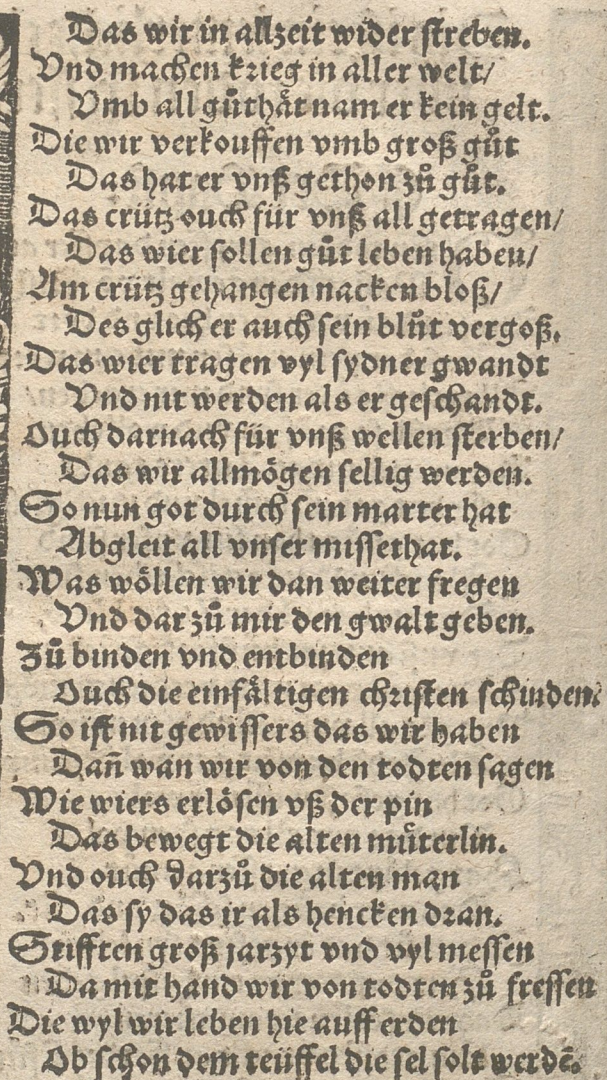 Das wir in allzeit wider streben.
Vnd machen krieg in aller welt/
Vmb all guͦthaͤt nam er kein gelt.
Die wir verkouffen vmb groß guͦt
Das hat er vnß gethon zuͦ guͦt.
Das crütz ouch für vnß all getragen/
Das wier sollen guͦt leben haben/
Am crütz gehangen nacken bloß/
Des glich er auch sein bluͦt vergoß.
Das wier tragen vyl sydner gwandt
Vnd nit werden als er geschandt.
Ouch darnach für vnß wellen sterben/
Das wir all mögen sellig werden.
So nun got durch sein marter hat
Abgleit all vnser missethat.
Was wöllen wir dan weiter fregen
Vnd dar zuͦ mir den gwalt geben.
Zuͦ binden vnd entbinden
Ouch die einfältigen christen schinden.
So ist nit gewissers das wir haben
Dañ wan wir von den todten sagen
Wie wiers erlösen vß der pin
Das bewegt die alten müterlin.
Vnd ouch darzuͦ die alten man
Das sy das ir als hencken dran.
Stifften groß jarzyt vnd vyl messen
Da mit hand wir von todten zuͦ fressen
Die wyl wir leben hie auff erden
Ob schon dem teüffel die sel solt werdē.